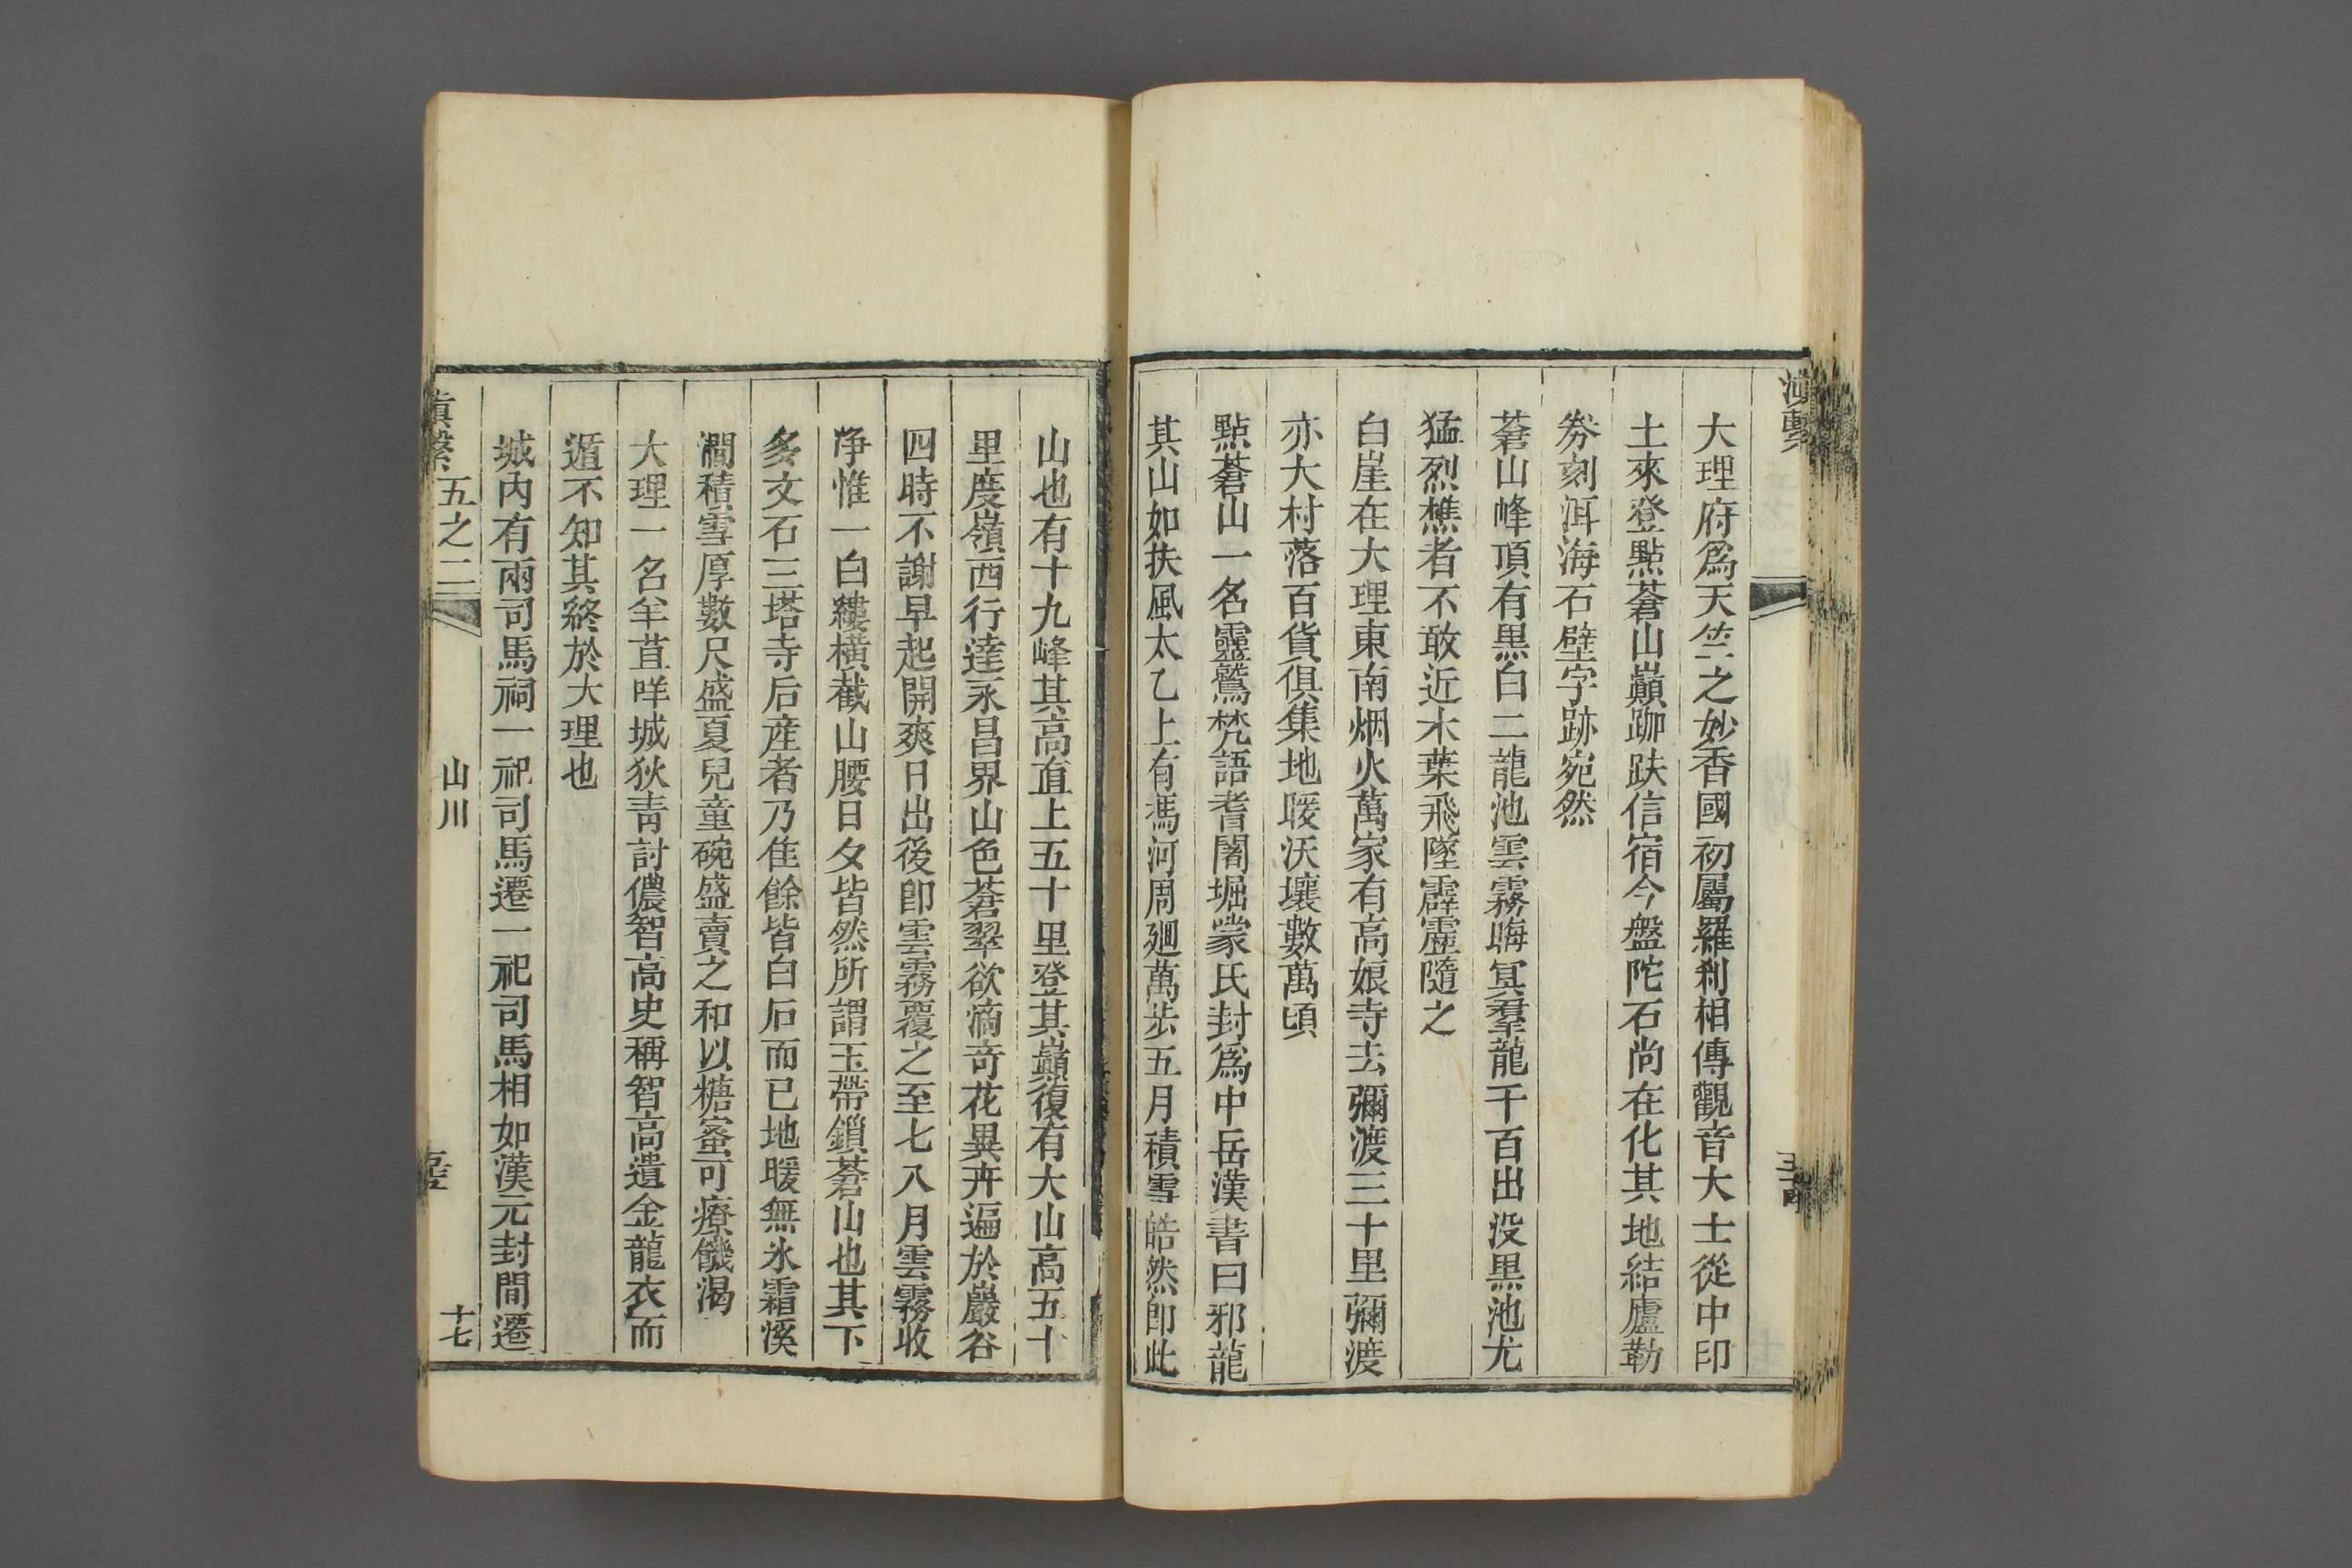 大理府爲天竺之妙香國初屬羅刹相傳觀音大士從中印
土來登點蒼山巔跏趺信宿今盤陀石尚在化其地結廬勒
劵刻洱海石壁字跡宛然
蒼山峰頂有黑白二龍池雲霧晦冥羣龍千百出没黒池尤
猛烈樵者不敢近木葉飛墜霹靂隨之
白崖在大理東南烟火萬家有高娘寺去彌渡三十里彌渡
亦大村落百貨俱集地暖沃壤數萬頃
點蒼山一名靈鷲梵語耆闍堀蒙氏封爲中岳漢書曰邪龍
其山如扶風太乙上有馮河周廻萬步五月積雪皓然卽此
山也有十九峰其高直上五十里登其巔復有大山高五十
里度嶺西行達永昌界山色蒼翠欲滴奇花異卉遍於巖谷
四時不謝早起開爽日出後卽雲霧覆之至七八月雲霧收
淨惟一白縷横截山腰日夕皆然所謂玉帶鎖蒼山也其下
多文石三塔寺后産者乃佳餘皆白石而已地暖無氷霜溪
澗積雪厚數尺盛夏兒童碗盛賣之和以糖蜜可療饑渴
大理一名羊苴咩城狄青討儂智高史稱智高遺金龍衣而
遁不知其終於大理也
城内有兩司馬祠一祀司馬遷一祀司馬相如漢元封間遷
滇繫 五之二 山川 十七